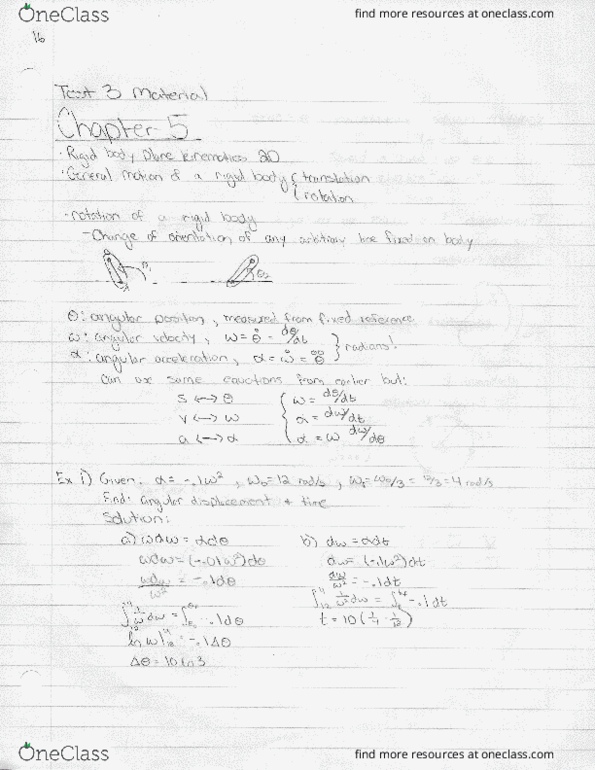 OneClass
find more resources at oneclass.com
16
Test 3 Material
Chapter 5
· Rigid body plane kinematics 2D
· General motion of a rigid body { translation
{ rotation
· rotation of a rigid body
- Change of orientation of any arbitrary line fixed on body
θ: angular position, measured from fixed reference
ω: angular velocity, ω = θ̇ = dθ/dt
α: angular acceleration, α = ω̇ = θ̈ } radians!
Can use same equations from earlier but:
s ↔ θ { ω = dθ/dt
v ↔ ω { α = dω/dt
a ↔ α { α = ω dω/dθ
Ex 1) Given. α = -.1ω², ω₀ = 12 rad/s, ω_f = ω₀/3 = 12/3 = 4 rad/s
Find: angular displacement + time
Solution:
a) ωdω = αdθ b) dω = αdt
ωdω = (-.01ω²)dθ dω = (-.1ω²)dt
ωdω/ω² = -.1dθ dω/ω² = -.1dt
∫ 1/ω dω = ∫ -.1dθ ∫ 1/ω² dω = ∫ -.1dt
ln ω| = -.1Δθ t = 10(
Δθ = 10 ln 3
OneClass
find more resources at oneclass.com